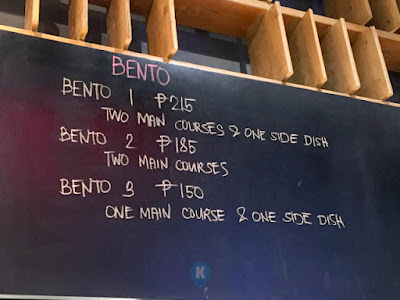 BENTO
BENTO 1 ₱215
TWO MAIN COURSES & ONE SIDE DISH
BENTO 2 ₱185
TWO MAIN COURSES
BENTO 3 ₱150
ONE MAIN COURSE & ONE SIDE DISH
K